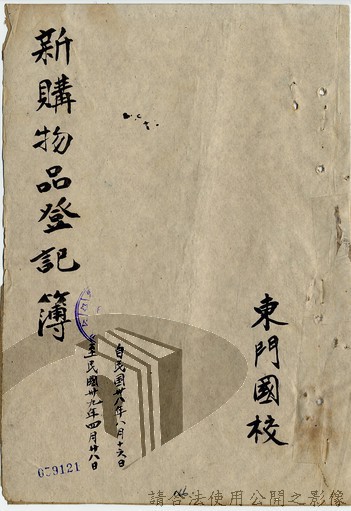 東門國校
自民國卅八年八月十六日
至民國卅九年四月廿八日
新購物品登記簿
659121
請合法使用公開之影像